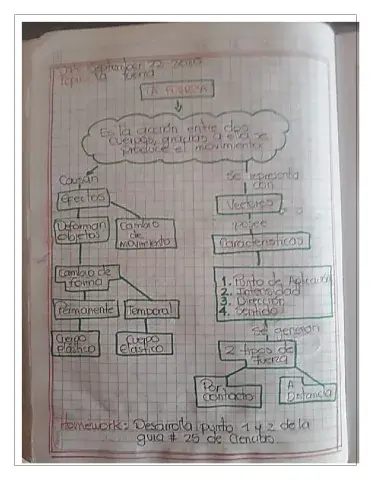 September 22
La fuerza
LA FUERZA
Es la acción entre dos
cuerpos, gracias a ella se
produce el movimiento
Causan
Efectos
Deforman
objetos
Cambio
de
movimiento
Cambio de
forma
Permanente
Temporal
Cuerpo
Plástico
Cuerpo
Elástico
Se representa
con
Vectores
posee
Características
1. Punto de Aplicación
2. Intensidad
3. Dirección
4. Sentido
Se generan
2 tipos de
fuerza
Por
contacto
A
Distancia
Homework: Desarrolla punto 1 y 2 de la
guia # 25 de Ciencias.